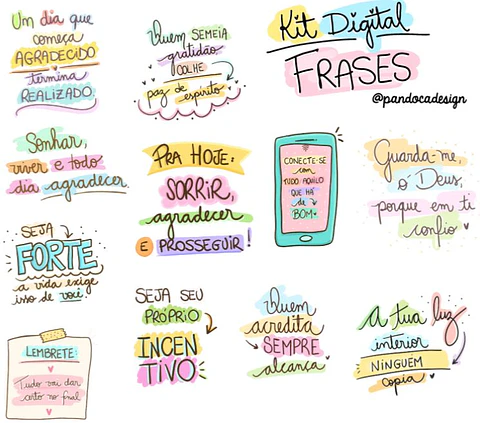 Um dia que
começa
AGRADECIDO
termina
REALIZADO.
Quem SEMEIA
gratidão
COLHE
paz de espírito
Kit Digital
FRASES
@pandocadesign
Sonhar,
viver e todo
dia agradecer
PRA HOJE:
SORRIR,
agradecer
E PROSSEGUIR!
CONECTE-SE
com
TUDO AQUILO
QUE HÁ
de
BOM
Guarda-me,
ó Deus,
porque em ti
confio
SEJA
FORTE
a vida exige
isso de você.
SEJA SEU
PRÓPRIO
INCEN
TIVO
Quem
acredita
SEMPRE
alcança
A tua luz
interior
NINGUÉM
copia
LEMBRETE:
Tudo vai dar
certo no final